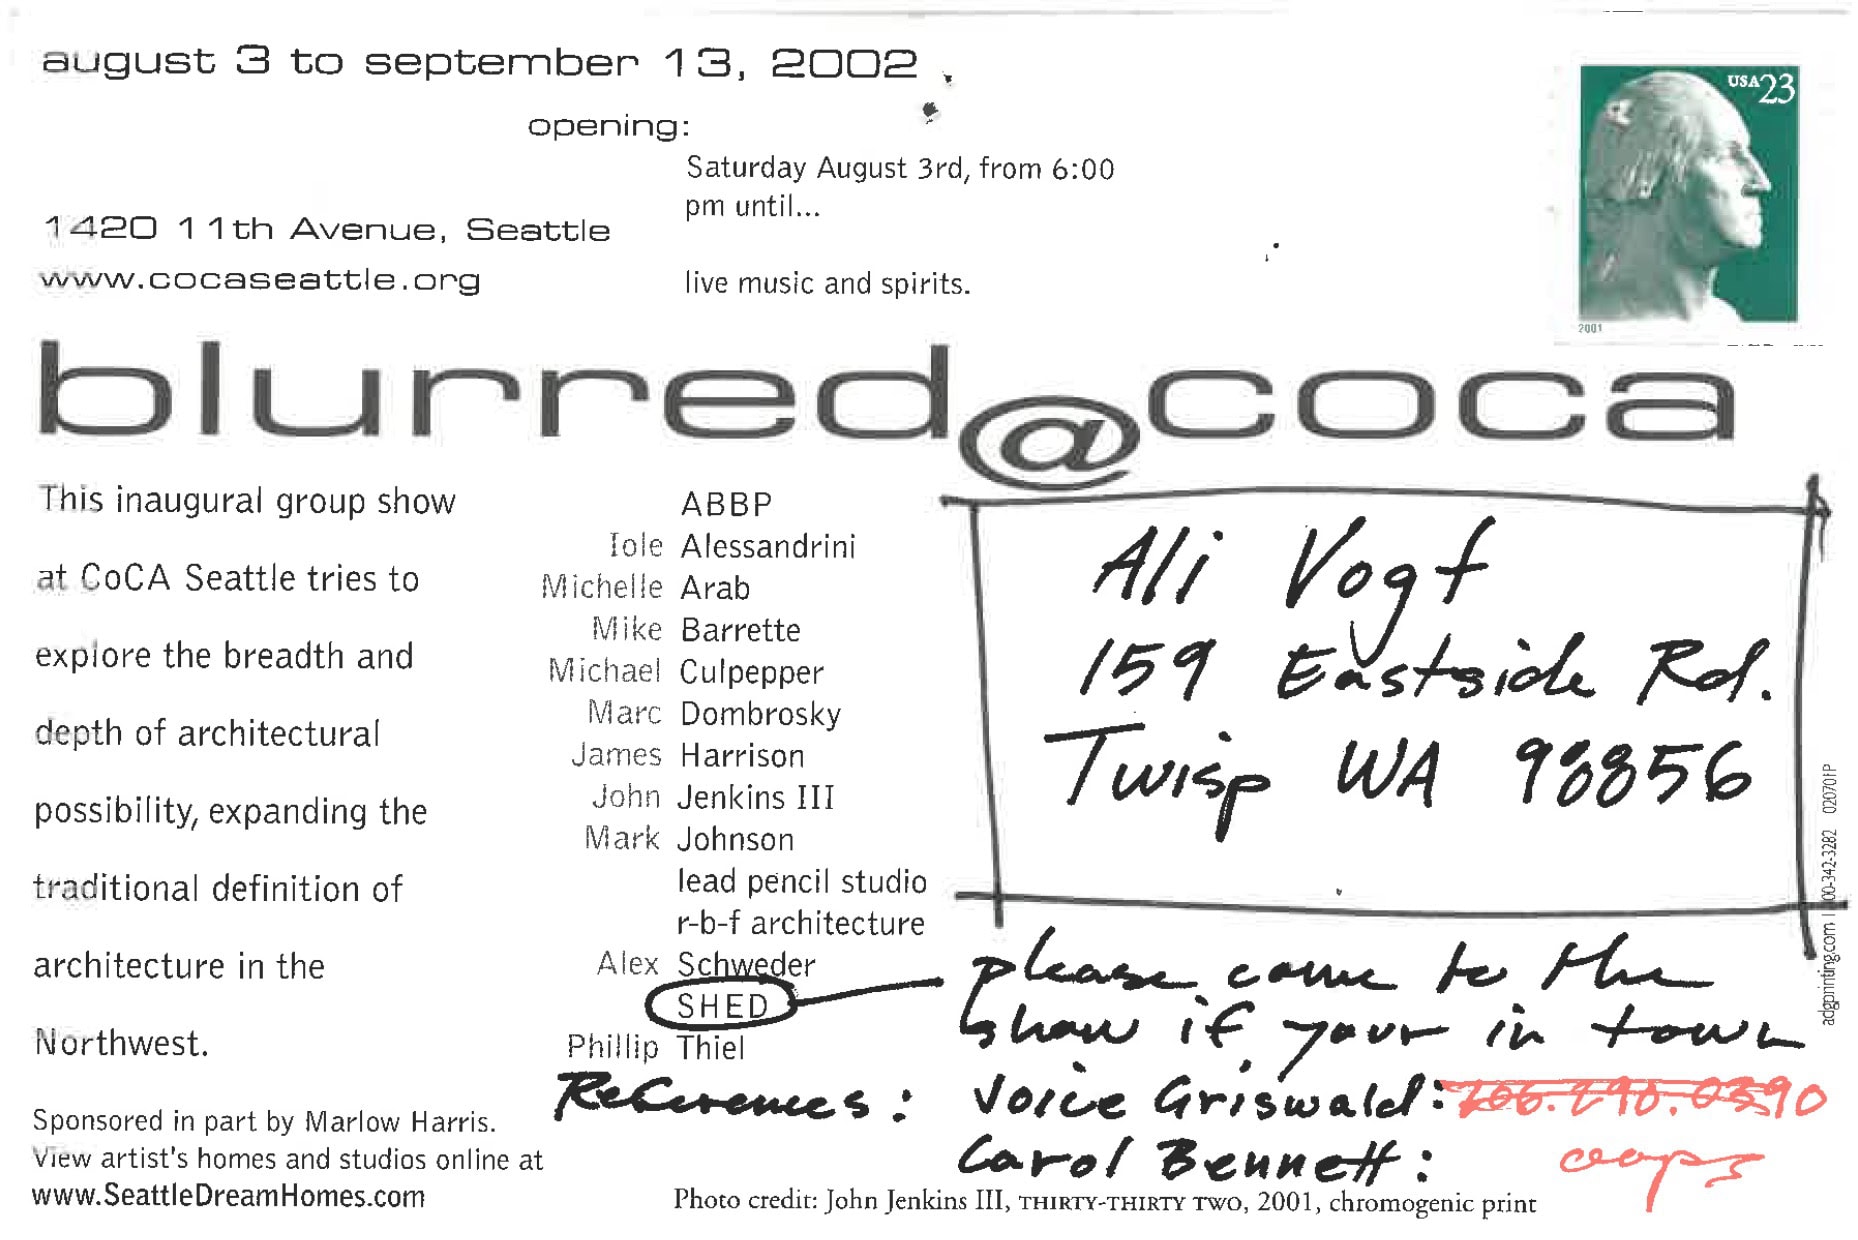 august 3 to september 13, 2002
opening:
Saturday August 3rd, from 6:00
pm until...
1420 11th Avenue, Seattle
www.cocaseattle.org
live music and spirits.
USA23
2001
blurred@coca
This inaugural group show
at CoCA Seattle tries to
explore the breadth and
depth of architectural
possibility, expanding the
traditional definition of
architecture in the
Northwest.
ABBP
Iole Alessandrini
Michelle Arab
Mike Barrette
Michael Culpepper
Marc Dombrosky
James Harrison
John Jenkins III
Mark Johnson
lead pencil studio
r-b-f architecture
Alex Schweder
SHED
Phillip Thiel
Ali Vogt
159 Eastside Rd.
Twisp WA 98856
please come to the
show if your in town
References: Joice Griswald: 206.290.0390
Carol Bennett: oops
Sponsored in part by Marlow Harris.
View artist's homes and studios online at
www.SeattleDreamHomes.com
Photo credit: John Jenkins III, THIRTY-THIRTY TWO, 2001, chromogenic print
adgprinting.com 00-342-3282 020701P